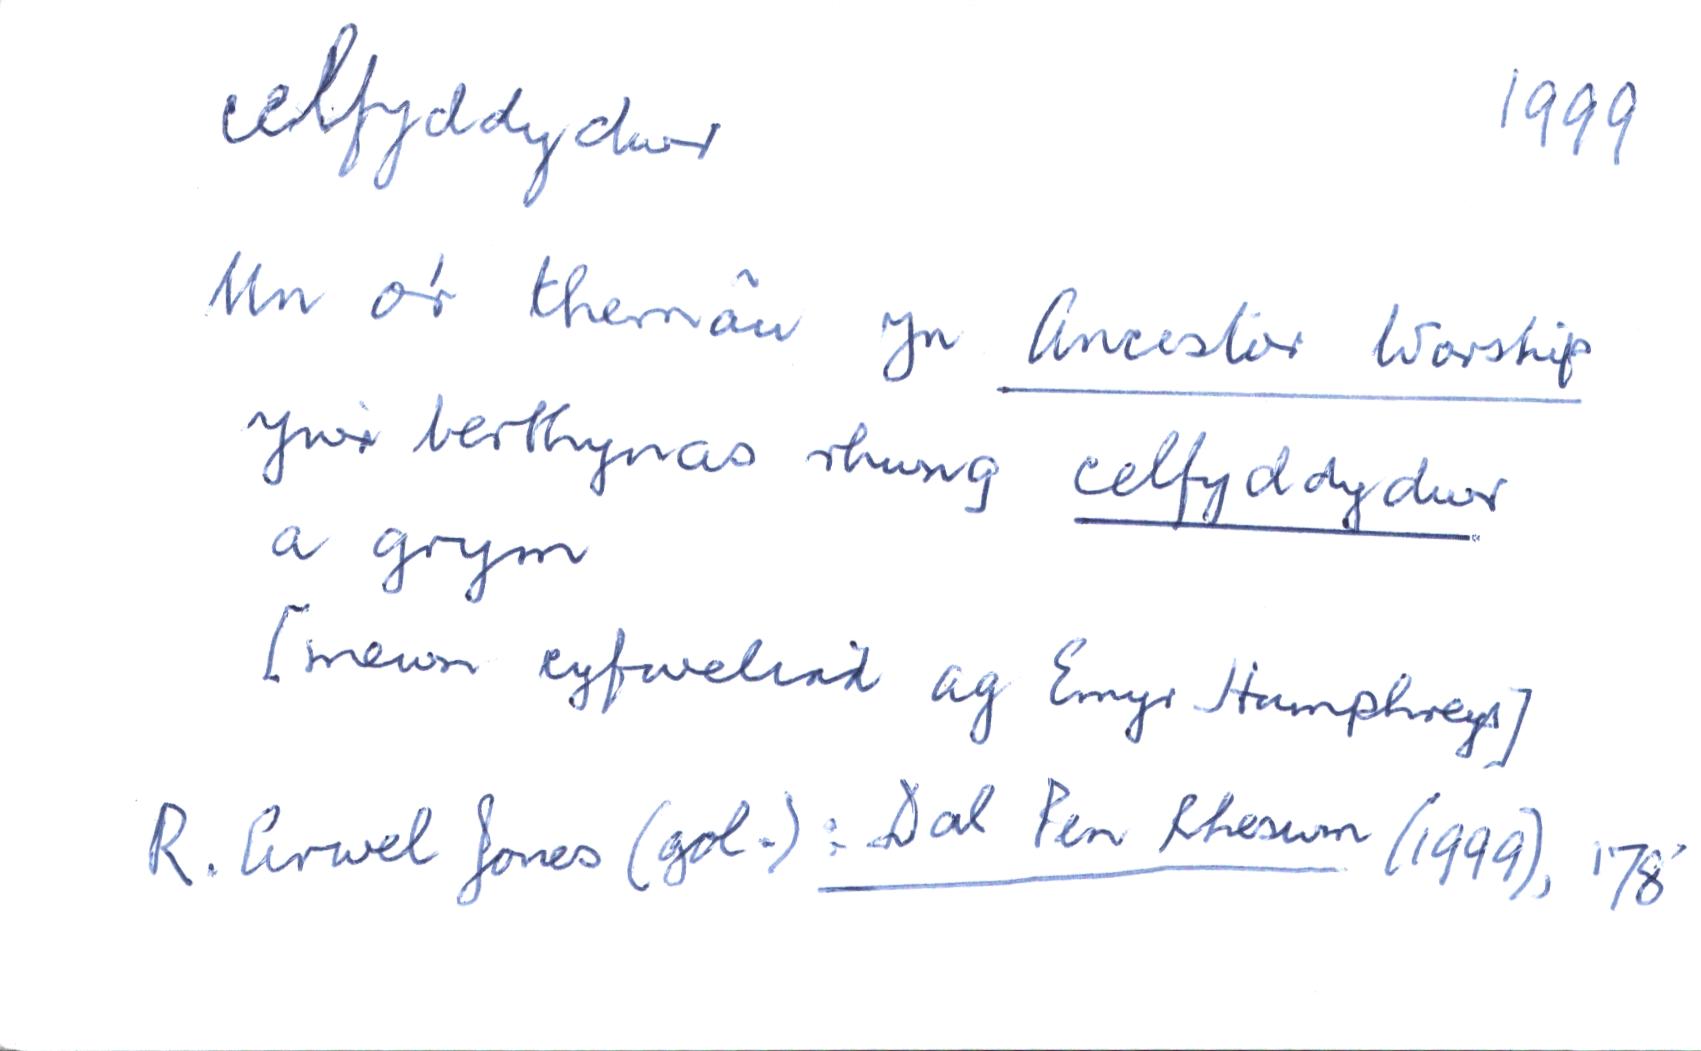 celfyddydwr 1999
Un o'r themâu yn Ancestor Worship
yw'r berthynas rhwng celfyddydwr
a grym
[mewn cyfweliad ag Emyr Humphreys]
R. Arwel Jones (gol.): Dal Pen Rheswm (1999), 178